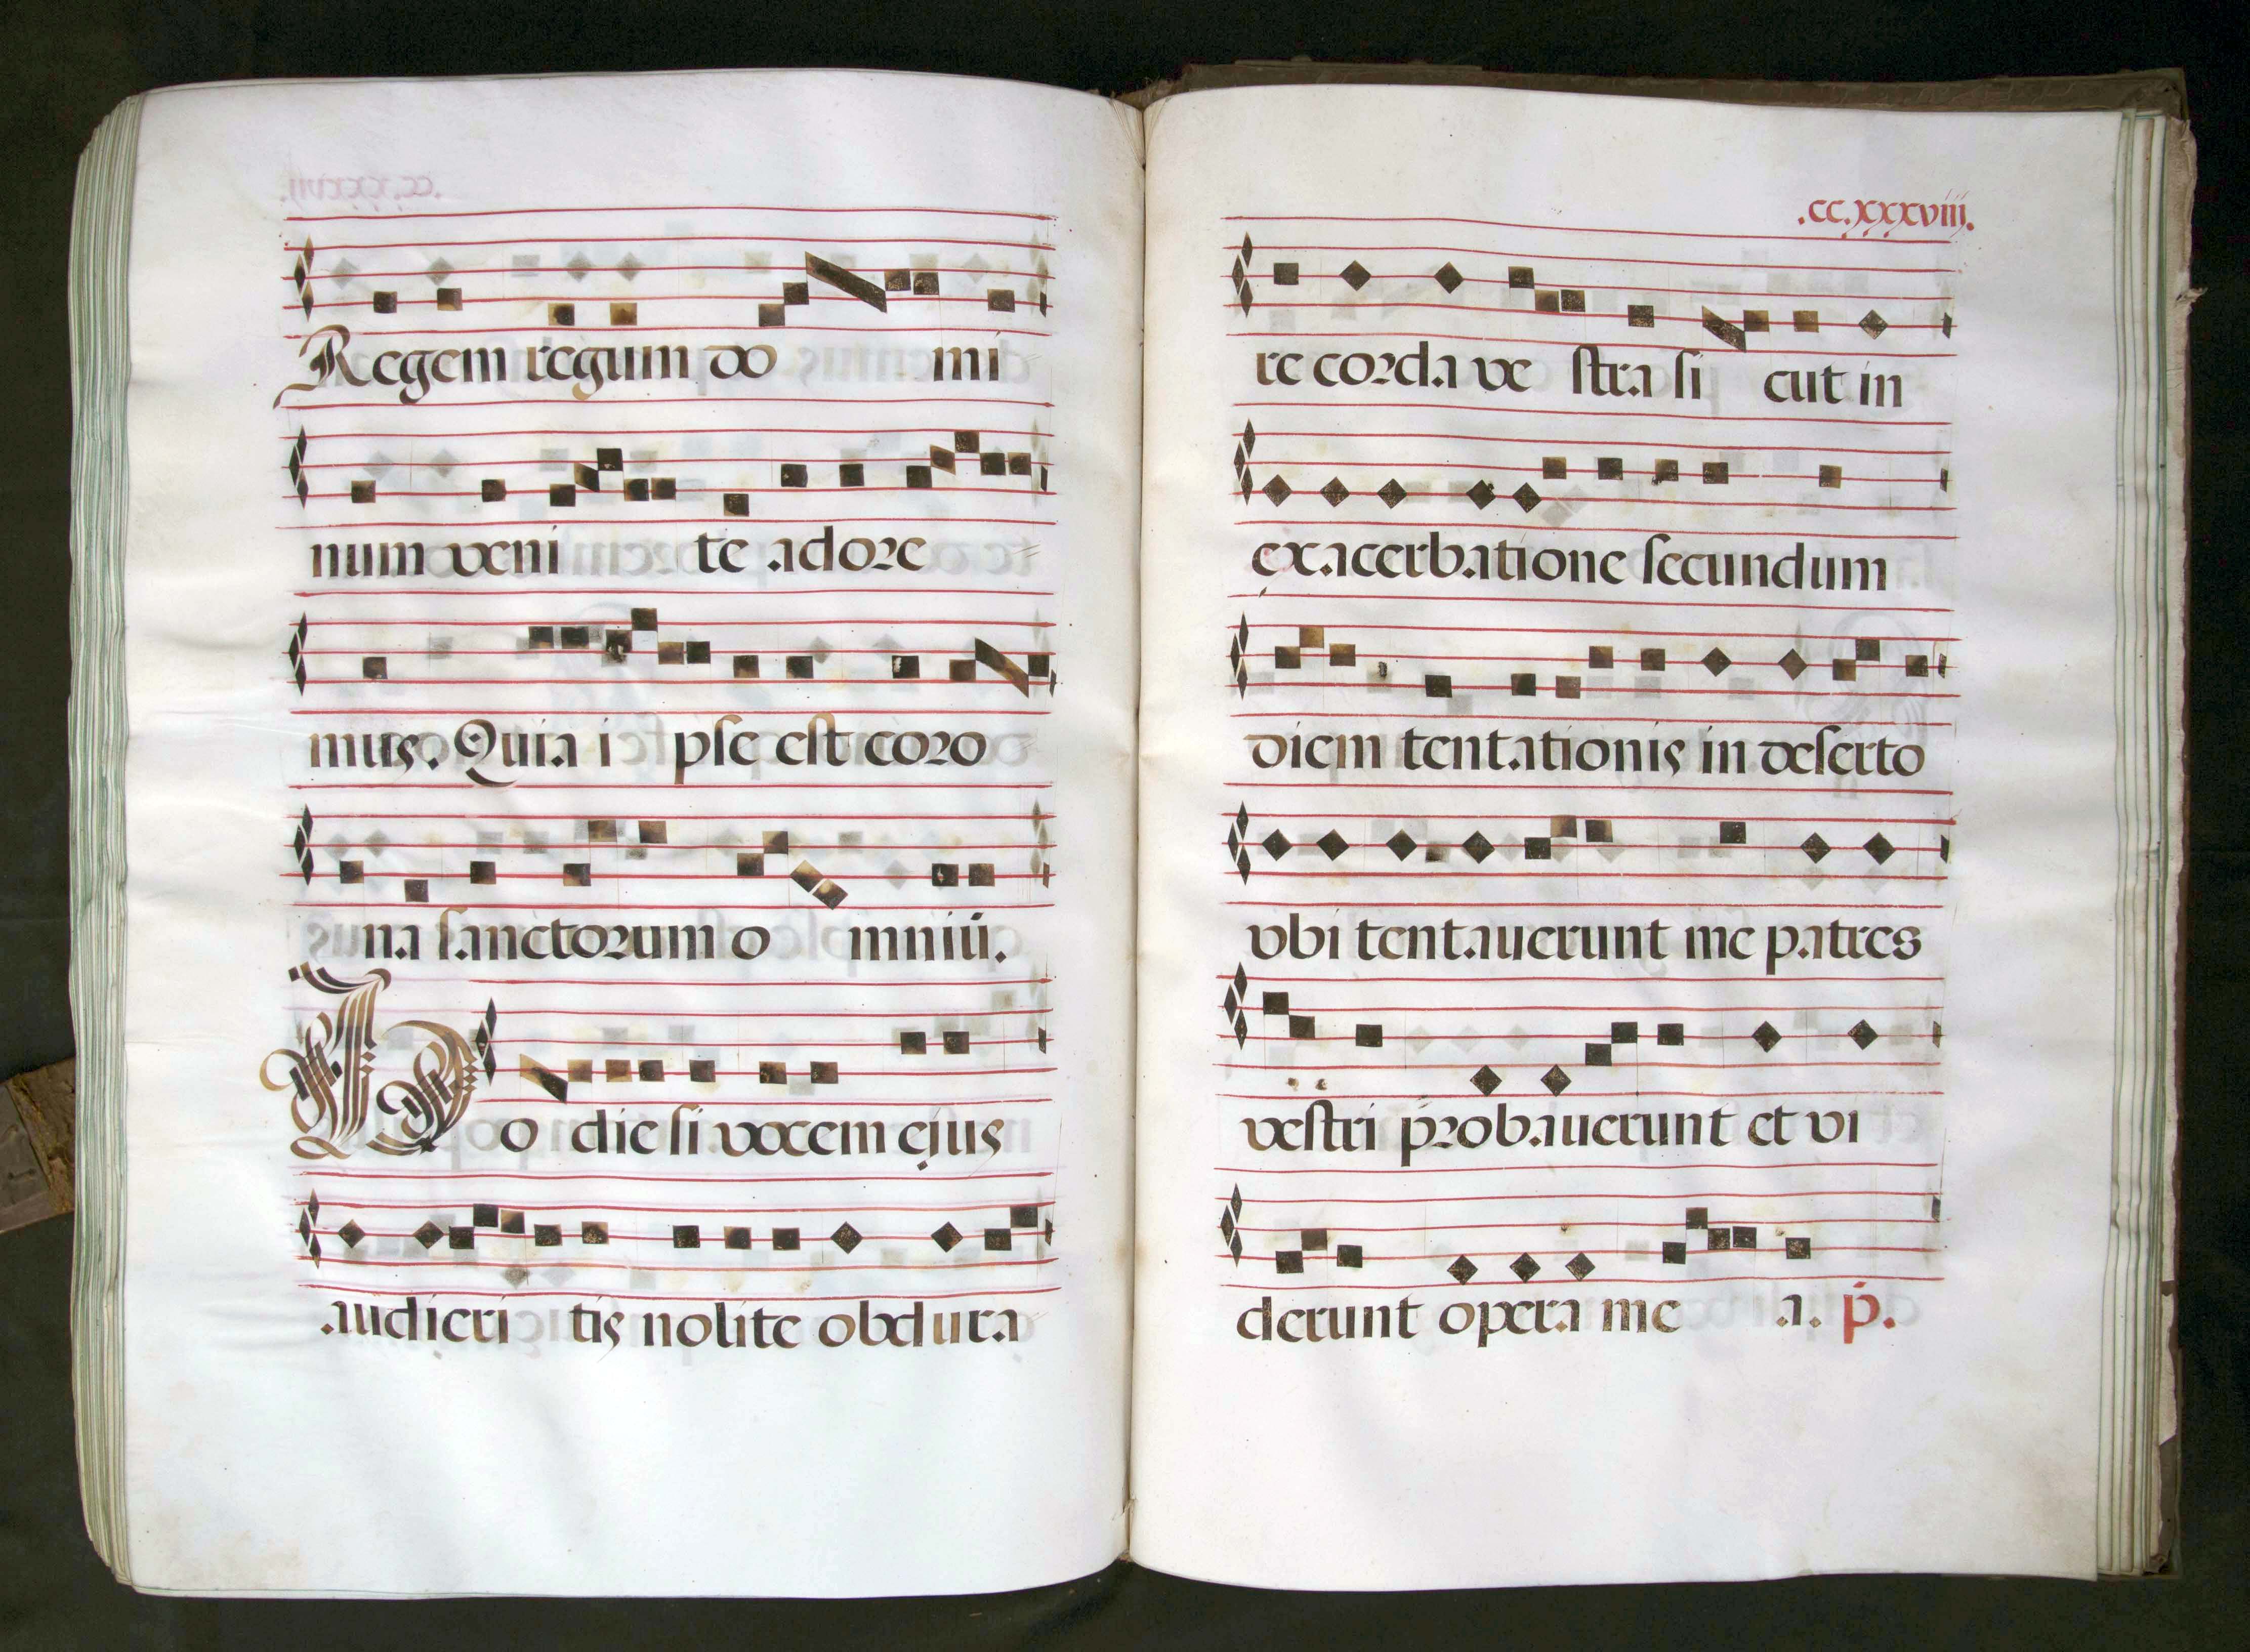 Regem regum do mi
num veni te adore
mus. Quia i pse est coro
na sanctorum o mniū.
Ho die si vocem ejus
audieri tis nolite obdura
.cc.xxxviii.
re corda ve stra si cut in
exacerbatione secundum
diem tentationis in deserto
vbi tentauerunt me patres
vestri probauerunt et vi
derunt opera me a. p̄.